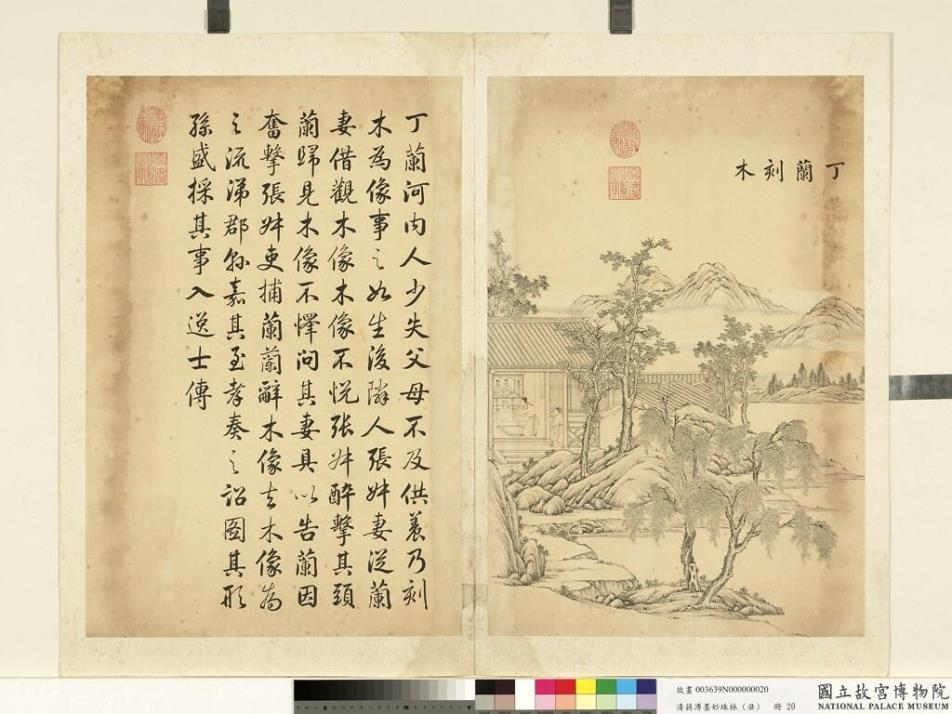 丁蘭刻木
丁蘭河內人少失父母不及供養乃刻
木為像事之如生後隣人張姅妻從蘭
妻借觀木像木像不悅張姅醉擊其頭
蘭歸見木像不懌問其妻具以告蘭因
奮擊張姅吏捕蘭蘭辭木像去木像為
之流涕郡縣嘉其至孝奏之詔圖其形
孫盛採其事入逸士傳
故畫 003639N000000020
清蔣溥墨妙珠林（丑） 冊 20
國立故宮博物院
NATIONAL PALACE MUSEUM